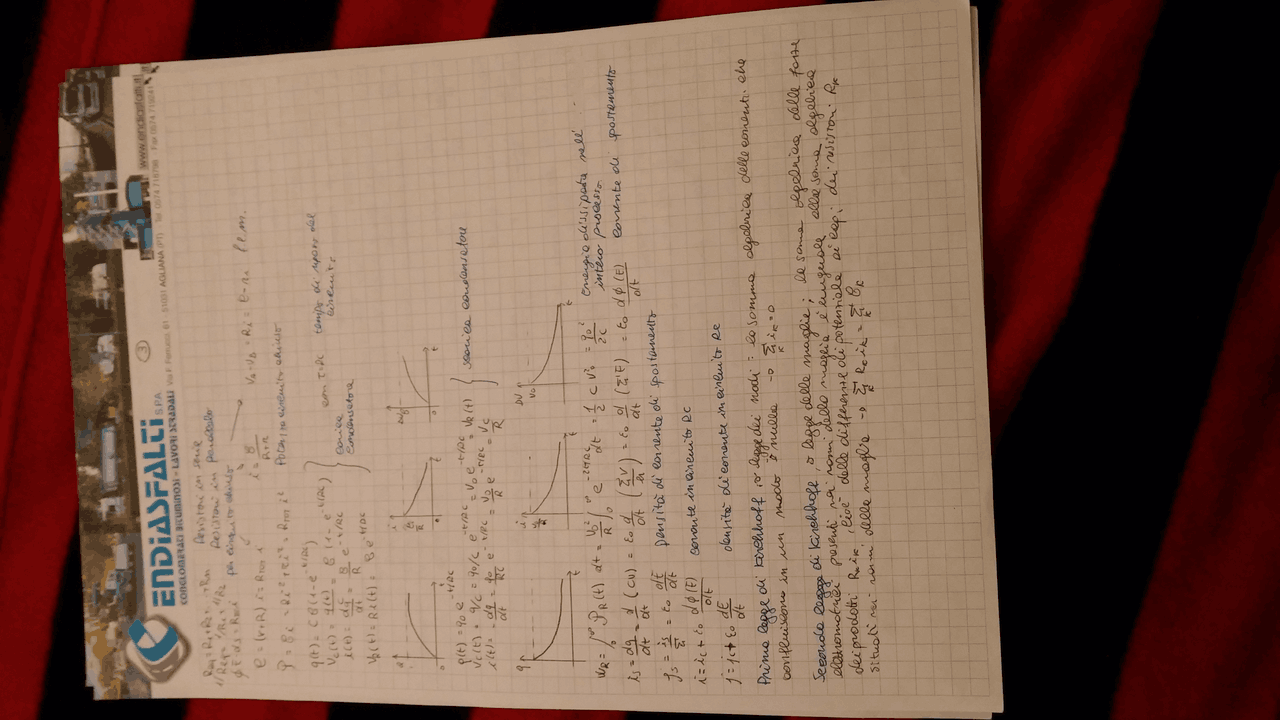 ENDIASFALTI S.P.A.
CONGLOMERATI BITUMINOSI - LAVORI STRADALI
Via F. Ferrucci, 61 - 51031 AGLIANA (PT)
Tel. 0574 718798 - Fax 0574 718041
3
Resistori in serie
Resistori in parallelo
per circuito chiuso
VA-VB = Ri = E-ri f.e.m.
Potenza circuito chiuso
q(t) = CE(1-e^-t/RC)
Vc(t) = q(t)/C = E(1-e^-t/RC)
i(t) = dq/dt = E/R e^-t/RC
VR(t) = Ri(t) = Ee^-t/RC
carica condensatore
con τ=RC tempo di
circuito
q(t) = q0 e^-t/RC
Vc(t) = q/C = q0/C e^-t/RC = V0 e^-t/RC = VR(t)
scarica condensatore
WR = ∫0^∞ PR(t) dt = V0²/R ∫0^∞ e^-2t/RC dt = 1/2 C V0² = q0²/2C energia dissipata nell'
intero processo
is = dq/dt = d/dt (CV) = ε0 d/dt (ΣV/h) = ε0 d/dt (ΣE) = ε0 dϕ(E)/dt corrente di spostamento
js = is/Σ = ε0 dE/dt densità di corrente di spostamento
i = ic + ε0 dϕ(E)/dt corrente in circuito RC
j = jc + ε0 dE/dt densità di corrente in circuito RC
Prima legge di Kirchhoff, o legge dei nodi: la somma algebrica delle correnti che
confluiscono in un nodo è nulla → Σk ik = 0
Seconda legge di Kirchhoff, o legge delle maglie: la somma algebrica delle forze
elettromotrici presenti nei rami della maglia è uguale alla somma algebrica
dei prodotti Rk ik, cioè delle differenze di potenziale ai capi dei resistori Rk
situati nei rami della maglia → Σk Rk ik = Σk Ek